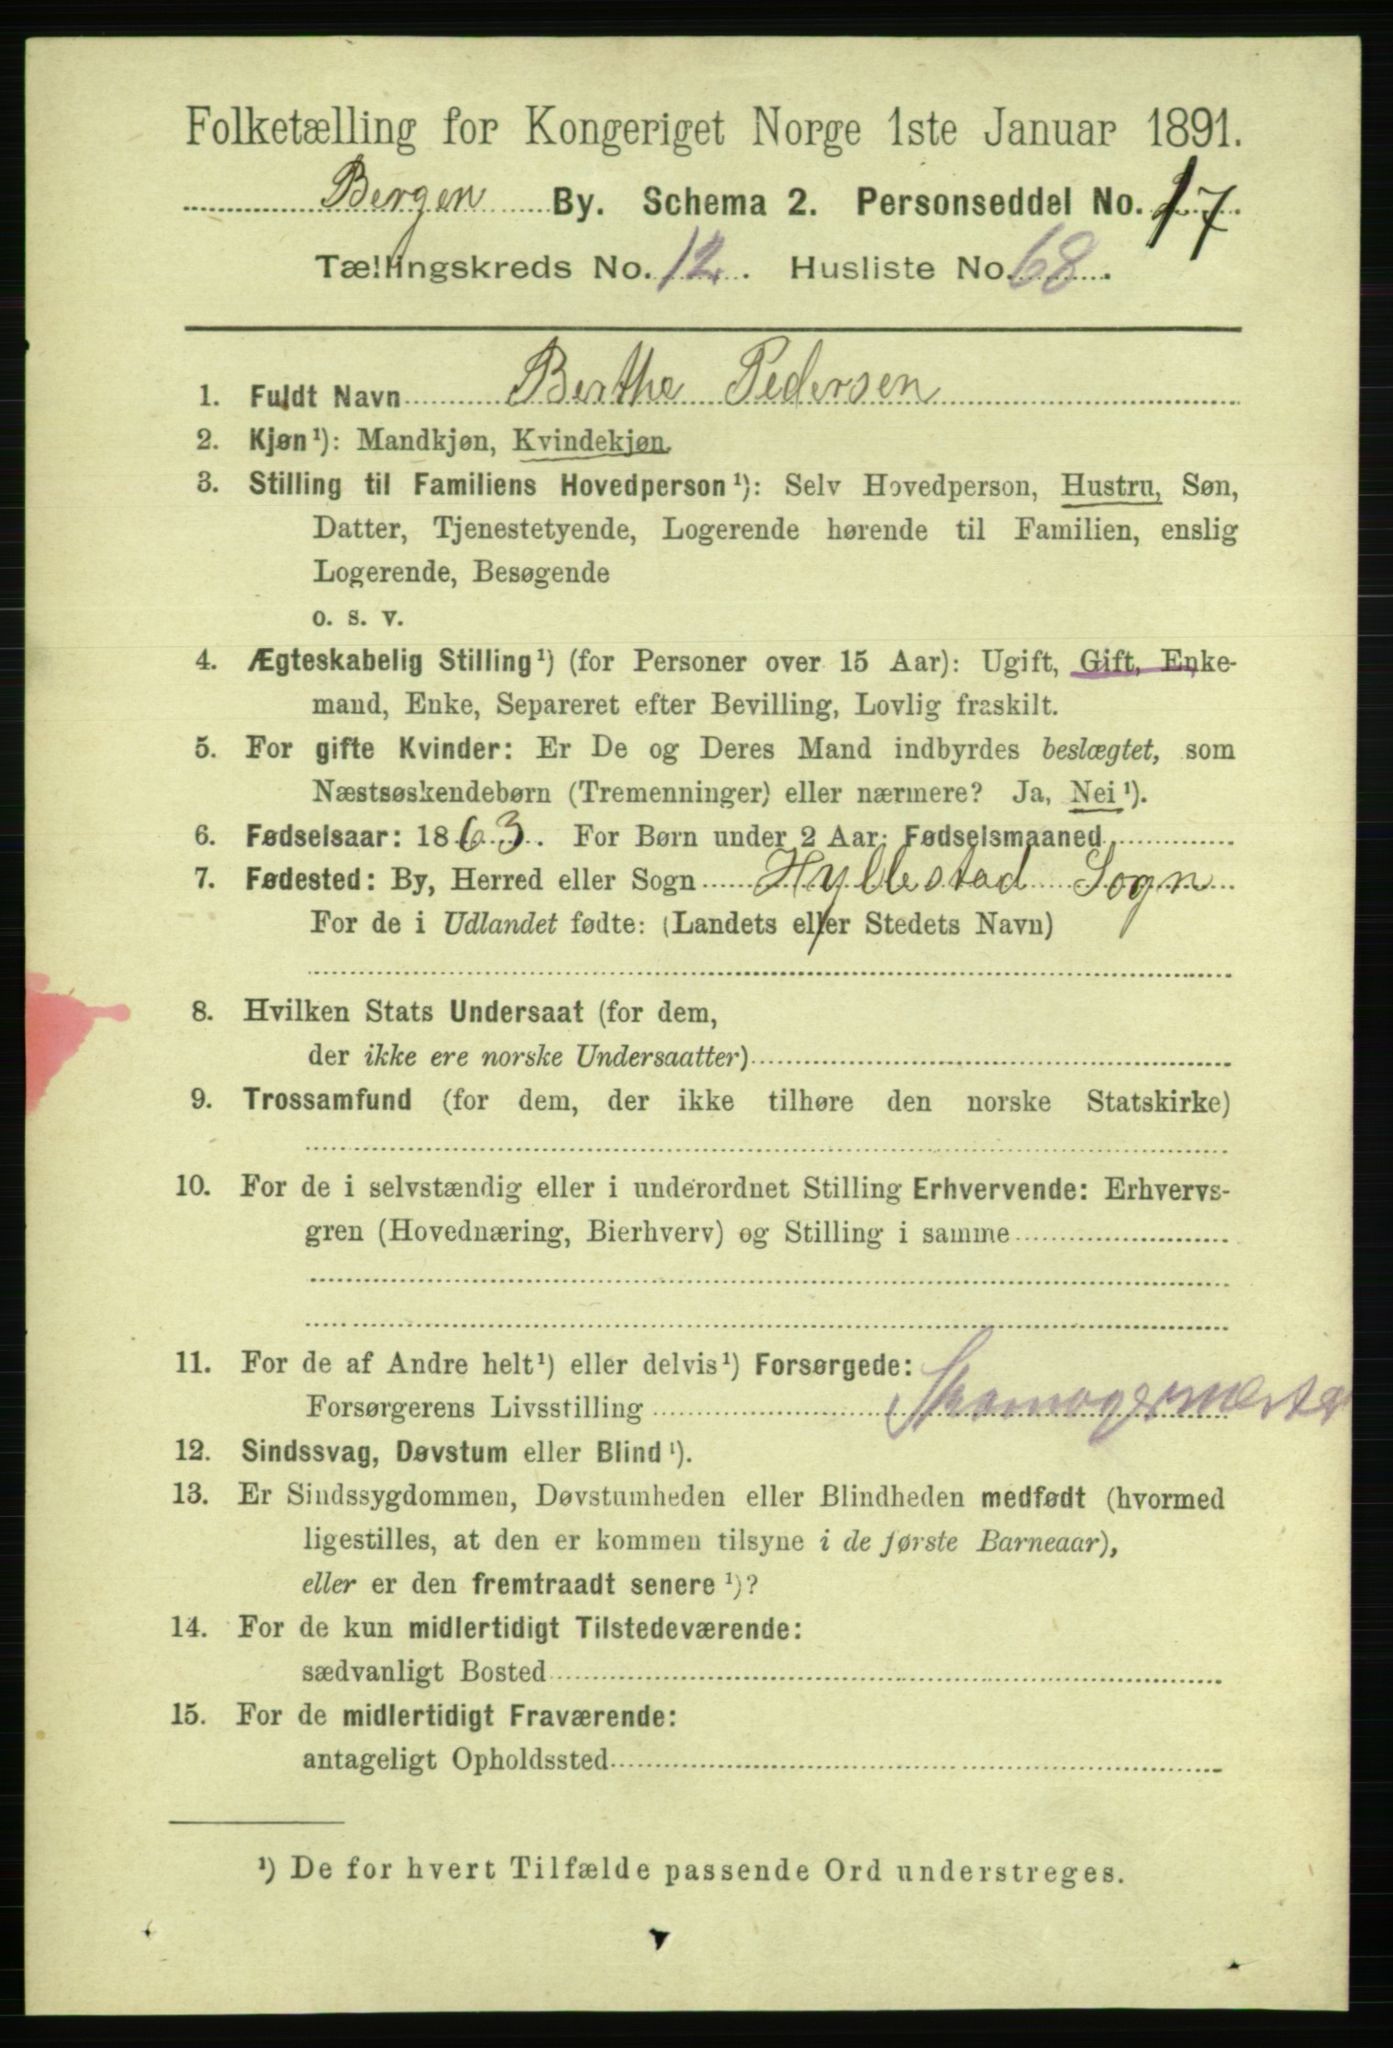 Folketælling for Kongeriget Norge 1ste Januar 1891.
Bergen By. Schema 2. Personseddel No. 17.
Tællingskreds No. 12. Husliste No. 68.
1. Fuldt Navn Berthe Pedersen
2. Kjøn¹): Mandkjøn, Kvindekjøn.
3. Stilling til Familiens Hovedperson¹): Selv Hovedperson, Hustru, Søn,
Datter, Tjenestetyende, Logerende hørende til Familien, enslig
Logerende, Besøgende
o. s. v.
4. Ægteskabelig Stilling¹) (for Personer over 15 Aar): Ugift, Gift, Enke-
mand, Enke, Separeret efter Bevilling, Lovlig fraskilt.
5. For gifte Kvinder: Er De og Deres Mand indbyrdes beslægtet, som
Næstsøskendebørn (Tremenninger) eller nærmere? Ja, Nei¹).
6. Fødselsaar: 1863. For Børn under 2 Aar: Fødselsmaaned
7. Fødested: By, Herred eller Sogn Hyllestad Sogn
For de i Udlandet fødte: (Landets eller Stedets Navn)
8. Hvilken Stats Undersaat (for dem,
der ikke ere norske Undersaatter)
9. Trossamfund (for dem, der ikke tilhøre den norske Statskirke)
10. For de i selvstændig eller i underordnet Stilling Erhvervende: Erhvervs-
gren (Hovednæring, Bierhverv) og Stilling i samme
11. For de af Andre helt¹) eller delvis¹) Forsørgede:
Forsørgerens Livsstilling Skomagermester
12. Sindssvag, Døvstum eller Blind¹).
13. Er Sindssygdommen, Døvstumheden eller Blindheden medfødt (hvormed
ligestilles, at den er kommen tilsyne i de første Barneaar),
eller er den fremtraadt senere¹)?
14. For de kun midlertidigt Tilstedeværende:
sædvanligt Bosted
15. For de midlertidigt Fraværende:
antageligt Opholdssted
¹) De for hvert Tilfælde passende Ord understreges.